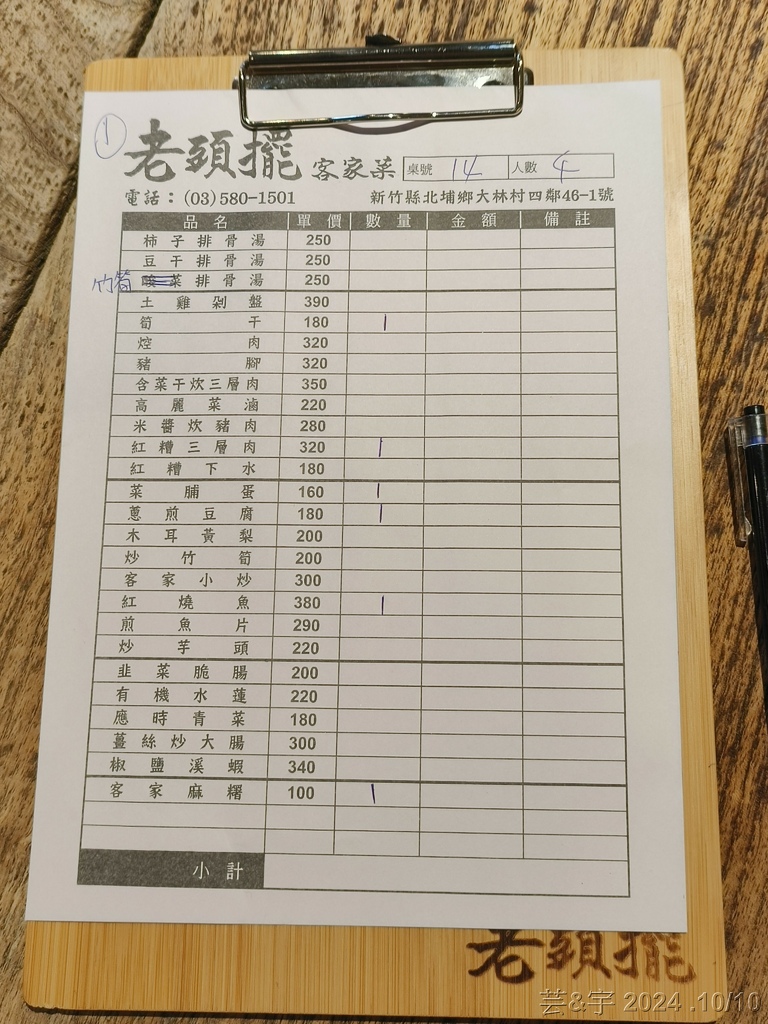 ① 老頭擺 客家菜 桌號 14 人數 4
電話：(03)580-1501 新竹縣北埔鄉大林村四鄰46-1號
品名 單價 數量 金額 備註
柿子排骨湯 250
豆干排骨湯 250
竹筍 酸菜排骨湯 250
土雞剁盤 390
筍干 180 1
焢肉 320
豬腳 320
含菜干炊三層肉 350
高麗菜滷 220
米醬炊豬肉 280
紅糟三層肉 320 1
紅糟下水 180
菜脯蛋 160 1
蔥煎豆腐 180 1
木耳黃梨 200
炒竹筍 200
客家小炒 300
紅燒魚 380 1
煎魚片 290
炒芋頭 220
韭菜脆腸 200
有機水蓮 220
應時青菜 180
薑絲炒大腸 300
椒鹽溪蝦 340
客家麻糬 100 1
小計
老頭擺
芸&宇 2024.10/10